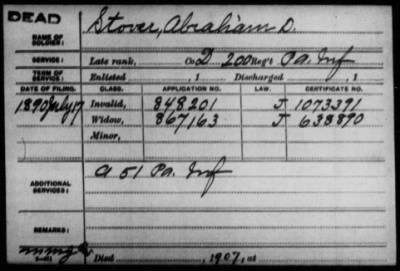 DEAD
NAME OF SOLDIER: Stover, Abraham D.
SERVICE: Late rank, Co. D. 200 Reg't Pa. Inf
TERM OF SERVICE: Enlisted , 1 Discharged , 1
DATE OF FILING. CLASS. APPLICATION NO. LAW. CERTIFICATE NO.
1890 July 17 Invalid, 848201 J 1073391
Widow, 867163 J 638890
Minor,
ADDITIONAL SERVICES: A 51 Pa. Inf
REMARKS:
Died , 1907, at